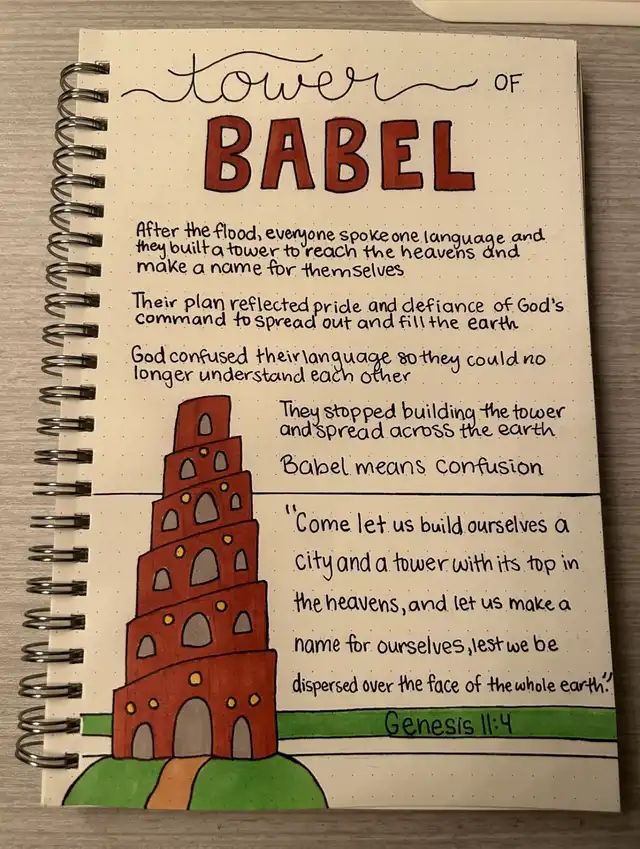 tower OF
BABEL
After the flood, everyone spoke one language and
they built a tower to reach the heavens and
make a name for themselves
Their plan reflected pride and defiance of God's
command to spread out and fill the earth
God confused their language so they could no
longer understand each other
They stopped building the tower
and spread across the earth
Babel means confusion
"Come let us build ourselves a
city and a tower with its top in
the heavens, and let us make a
name for ourselves, lest we be
dispersed over the face of the whole earth."
Genesis 11:4